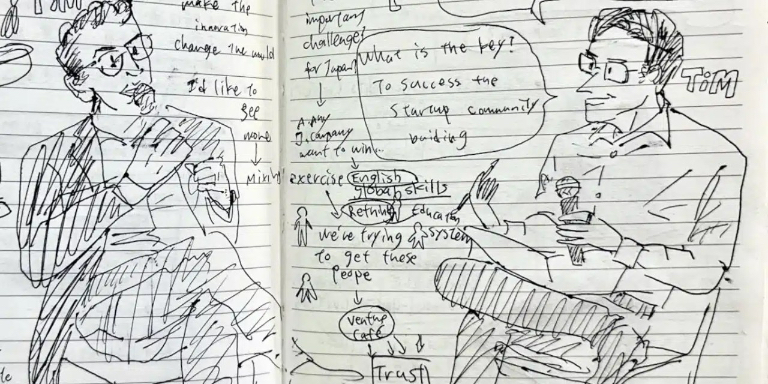 make the
innovation
change the world
I'd like to
see
more
Mixing
important
challenges
for Japan?
A. Any
J. Company
want to win...
exercise English
global skills
Rethink Education
System
we're trying
to get these
peope
Venture
Cafe
Trust
What is the key?
To success the
Startup community
buiding
TiM